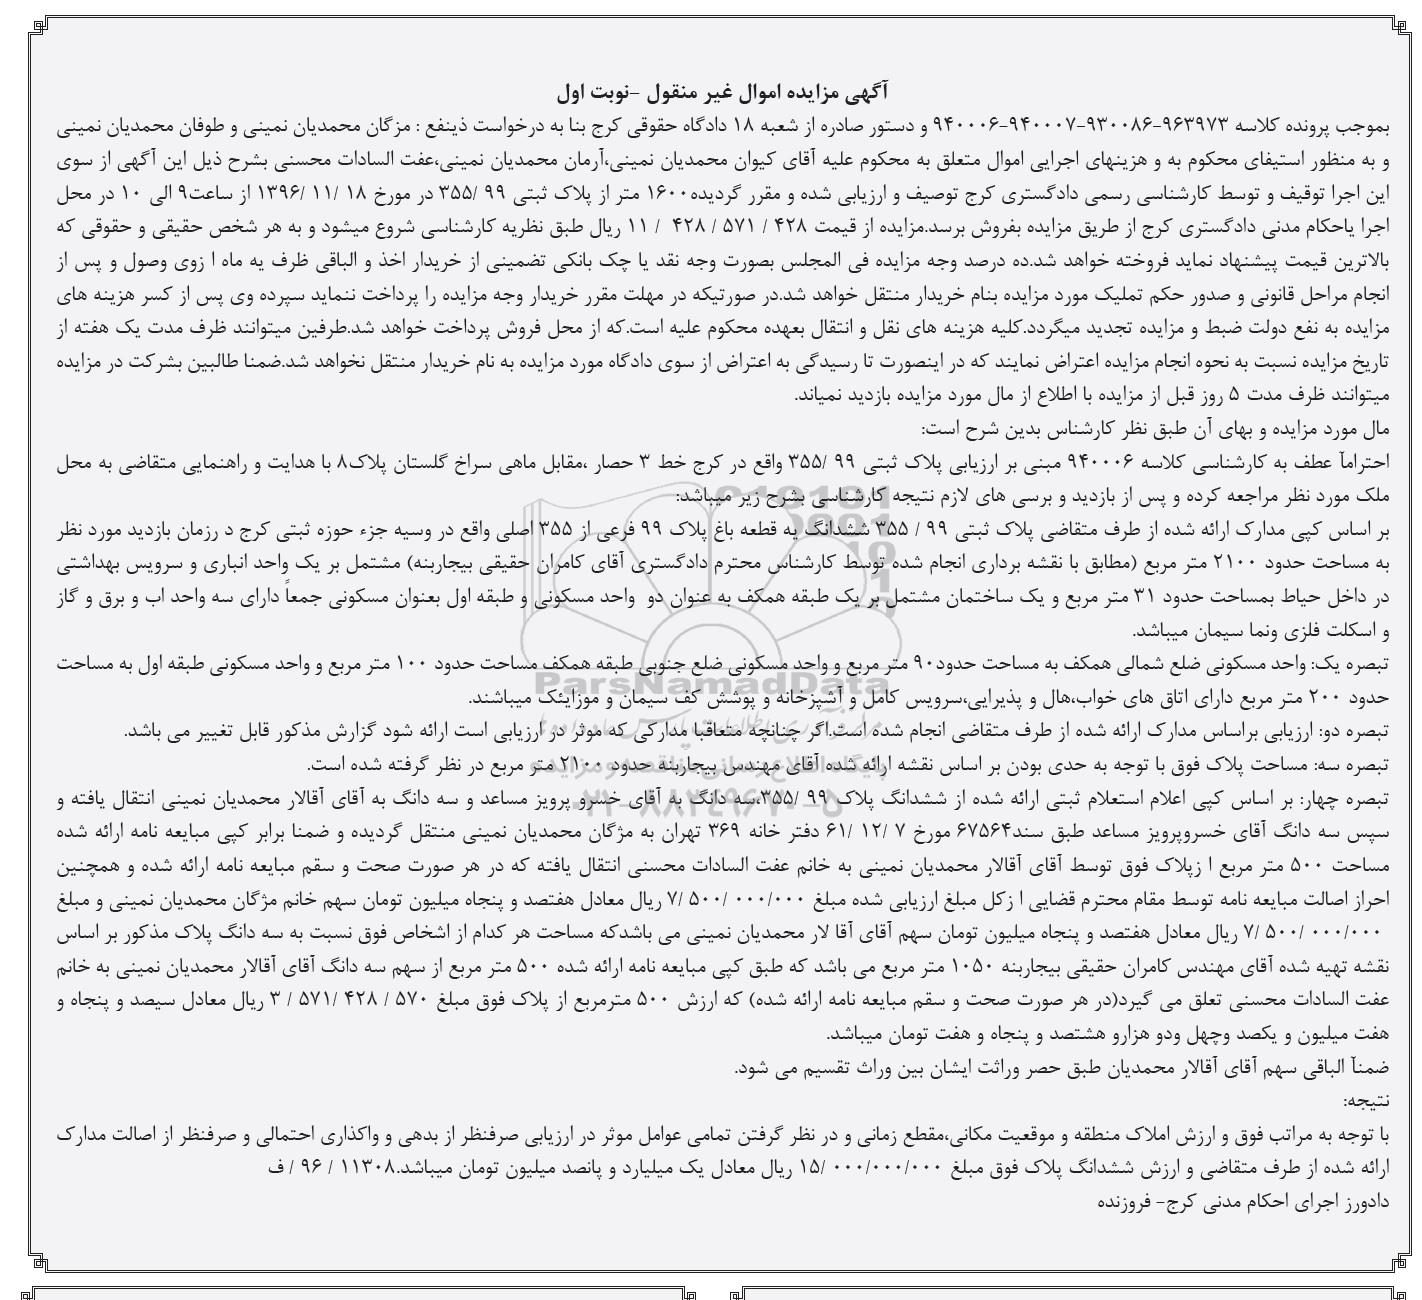 آگهی مزایده اموال غیر منقول -نوبت اول
بموجب پرونده کلاسه ۹۶۳۹۷۳-۹۳۰۰۸۶-۹۴۰۰۰۷-۹۴۰۰۰۶ و دستور صادره از شعبه ۱۸ دادگاه حقوقی کرج بنا به درخواست ذینفع : مزگان محمدیان نمینی و طوفان محمدیان نمینی
و به منظور استیفای محکوم به و هزینهای اجرایی اموال متعلق به محکوم علیه آقای کیوان محمدیان نمینی،آرمان محمدیان نمینی،عفت السادات محسنی بشرح ذیل این آگهی از سوی
این اجرا توقیف و توسط کارشناسی رسمی دادگستری کرج توصیف و ارزیابی شده و مقرر گردیده۱۶۰۰ متر از پلاک ثبتی ۹۹ /۳۵۵ در مورخ ۱۸ /۱۱ /۱۳۹۶ از ساعت۹ الی ۱۰ در محل
اجرا یاحکام مدنی دادگستری کرج از طریق مزایده بفروش برسد.مزایده از قیمت ۴۲۸ / ۵۷۱ / ۴۲۸ / ۱۱ ریال طبق نظریه کارشناسی شروع میشود و به هر شخص حقیقی و حقوقی که
بالاترین قیمت پیشنهاد نماید فروخته خواهد شد.ده درصد وجه مزایده فی المجلس بصورت وجه نقد یا چک بانکی تضمینی از خریدار اخذ و الباقی ظرف یه ماه ا زوی وصول و پس از
انجام مراحل قانونی و صدور حکم تملیک مورد مزایده بنام خریدار منتقل خواهد شد.در صورتیکه در مهلت مقرر خریدار وجه مزایده را پرداخت ننماید سپرده وی پس از کسر هزینه های
مزایده به نفع دولت ضبط و مزایده تجدید میگردد.کلیه هزینه های نقل و انتقال بعهده محکوم علیه است.که از محل فروش پرداخت خواهد شد.طرفین میتوانند ظرف مدت یک هفته از
تاریخ مزایده نسبت به نحوه انجام مزایده اعتراض نمایند که در اینصورت تا رسیدگی به اعتراض از سوی دادگاه مورد مزایده به نام خریدار منتقل نخواهد شد.ضمنا طالبین بشرکت در مزایده
میتوانند ظرف مدت ۵ روز قبل از مزایده با اطلاع از مال مورد مزایده بازدید نمیاند.
مال مورد مزایده و بهای آن طبق نظر کارشناس بدین شرح است:
احتراماً عطف به کارشناسی کلاسه ۹۴۰۰۰۶ مبنی بر ارزیابی پلاک ثبتی ۹۹ /۳۵۵ واقع در کرج خط ۳ حصار ،مقابل ماهی سراخ گلستان پلاک۸ با هدایت و راهنمایی متقاضی به محل
ملک مورد نظر مراجعه کرده و پس از بازدید و برسی های لازم نتیجه کارشناسی بشرح زیر میباشد:
بر اساس کپی مدارک ارائه شده از طرف متقاضی پلاک ثبتی ۹۹ / ۳۵۵ ششدانگ یه قطعه باغ پلاک ۹۹ فرعی از ۳۵۵ اصلی واقع در وسیه جزء حوزه ثبتی کرج د رزمان بازدید مورد نظر
به مساحت حدود ۲۱۰۰ متر مربع (مطابق با نقشه برداری انجام شده توسط کارشناس محترم دادگستری آقای کامران حقیقی بیجاربنه) مشتمل بر یک واحد انباری و سرویس بهداشتی
در داخل حیاط بمساحت حدود ۳۱ متر مربع و یک ساختمان مشتمل بر یک طبقه همکف به عنوان دو واحد مسکونی و طبقه اول بعنوان مسکونی جمعاً دارای سه واحد اب و برق و گاز
و اسکلت فلزی ونما سیمان میباشد.
تبصره یک: واحد مسکونی ضلع شمالی همکف به مساحت حدود۹۰ متر مربع و واحد مسکونی ضلع جنوبی طبقه همکف مساحت حدود ۱۰۰ متر مربع و واحد مسکونی طبقه اول به مساحت
حدود ۲۰۰ متر مربع دارای اتاق های خواب،هال و پذیرایی،سرویس کامل و آشپزخانه و پوشش کف سیمان و موزایئک میباشند.
تبصره دو: ارزیابی براساس مدارک ارائه شده از طرف متقاضی انجام شده است.اگر چنانچه متعاقبا مدارکی که موثر در ارزیابی است ارائه شود گزارش مذکور قابل تغییر می باشد.
تبصره سه: مساحت پلاک فوق با توجه به حدی بودن بر اساس نقشه ارائه شده آقای مهندس بیجاربنه حدود ۲۱۰۰ متر مربع در نظر گرفته شده است.
تبصره چهار: بر اساس کپی اعلام استعلام ثبتی ارائه شده از ششدانگ پلاک ۹۹ /۳۵۵،سه دانگ به آقای خسرو پرویز مساعد و سه دانگ به آقای آقالار محمدیان نمینی انتقال یافته و
سپس سه دانگ آقای خسروپرویز مساعد طبق سند۶۷۵۶۴ مورخ ۷ /۱۲ /۶۱ دفتر خانه ۳۶۹ تهران به مژگان محمدیان نمینی منتقل گردیده و ضمنا برابر کپی مبایعه نامه ارائه شده
مساحت ۵۰۰ متر مربع ا زپلاک فوق توسط آقای آقالار محمدیان نمینی به خانم عفت السادات محسنی انتقال یافته که در هر صورت صحت و سقم مبایعه نامه ارائه شده و همچنین
احراز اصالت مبایعه نامه توسط مقام محترم قضایی ا زکل مبلغ ارزیابی شده مبلغ ۰۰۰/۰۰۰ /۵۰۰ /۷ ریال معادل هفتصد و پنجاه میلیون تومان سهم خانم مژگان محمدیان نمینی و مبلغ
۰۰۰/۰۰۰ /۵۰۰ /۷ ریال معادل هفتصد و پنجاه میلیون تومان سهم آقای آقا لار محمدیان نمینی می باشدکه مساحت هر کدام از اشخاص فوق نسبت به سه دانگ پلاک مذکور بر اساس
نقشه تهیه شده آقای مهندس کامران حقیقی بیجاربنه ۱۰۵۰ متر مربع می باشد که طبق کپی مبایعه نامه ارائه شده ۵۰۰ متر مربع از سهم سه دانگ آقای آقالار محمدیان نمینی به خانم
عفت السادات محسنی تعلق می گیرد(در هر صورت صحت و سقم مبایعه نامه ارائه شده) که ارزش ۵۰۰ مترمربع از پلاک فوق مبلغ ۵۷۰ / ۴۲۸ /۵۷۱ / ۳ ریال معادل سیصد و پنجاه و
هفت میلیون و یکصد وچهل ودو هزارو هشتصد و پنجاه و هفت تومان میباشد.
ضمناً الباقی سهم آقای آقالار محمدیان طبق حصر وراثت ایشان بین وراث تقسیم می شود.
نتیجه:
با توجه به مراتب فوق و ارزش املاک منطقه و موقعیت مکانی،مقطع زمانی و در نظر گرفتن تمامی عوامل موثر در ارزیابی صرفنظر از بدهی و واکذاری احتمالی و صرفنظر از اصالت مدارک
ارائه شده از طرف متقاضی و ارزش ششدانگ پلاک فوق مبلغ ۰۰۰/۰۰۰/۰۰۰ /۱۵ ریال معادل یک میلیارد و پانصد میلیون تومان میباشد.۱۱۳۰۸ / ۹۶ / ف
دادورز اجرای احکام مدنی کرج- فروزنده
ParsNamadData
۰۲۱-۸۸۳۴۹۶۷۰-۵